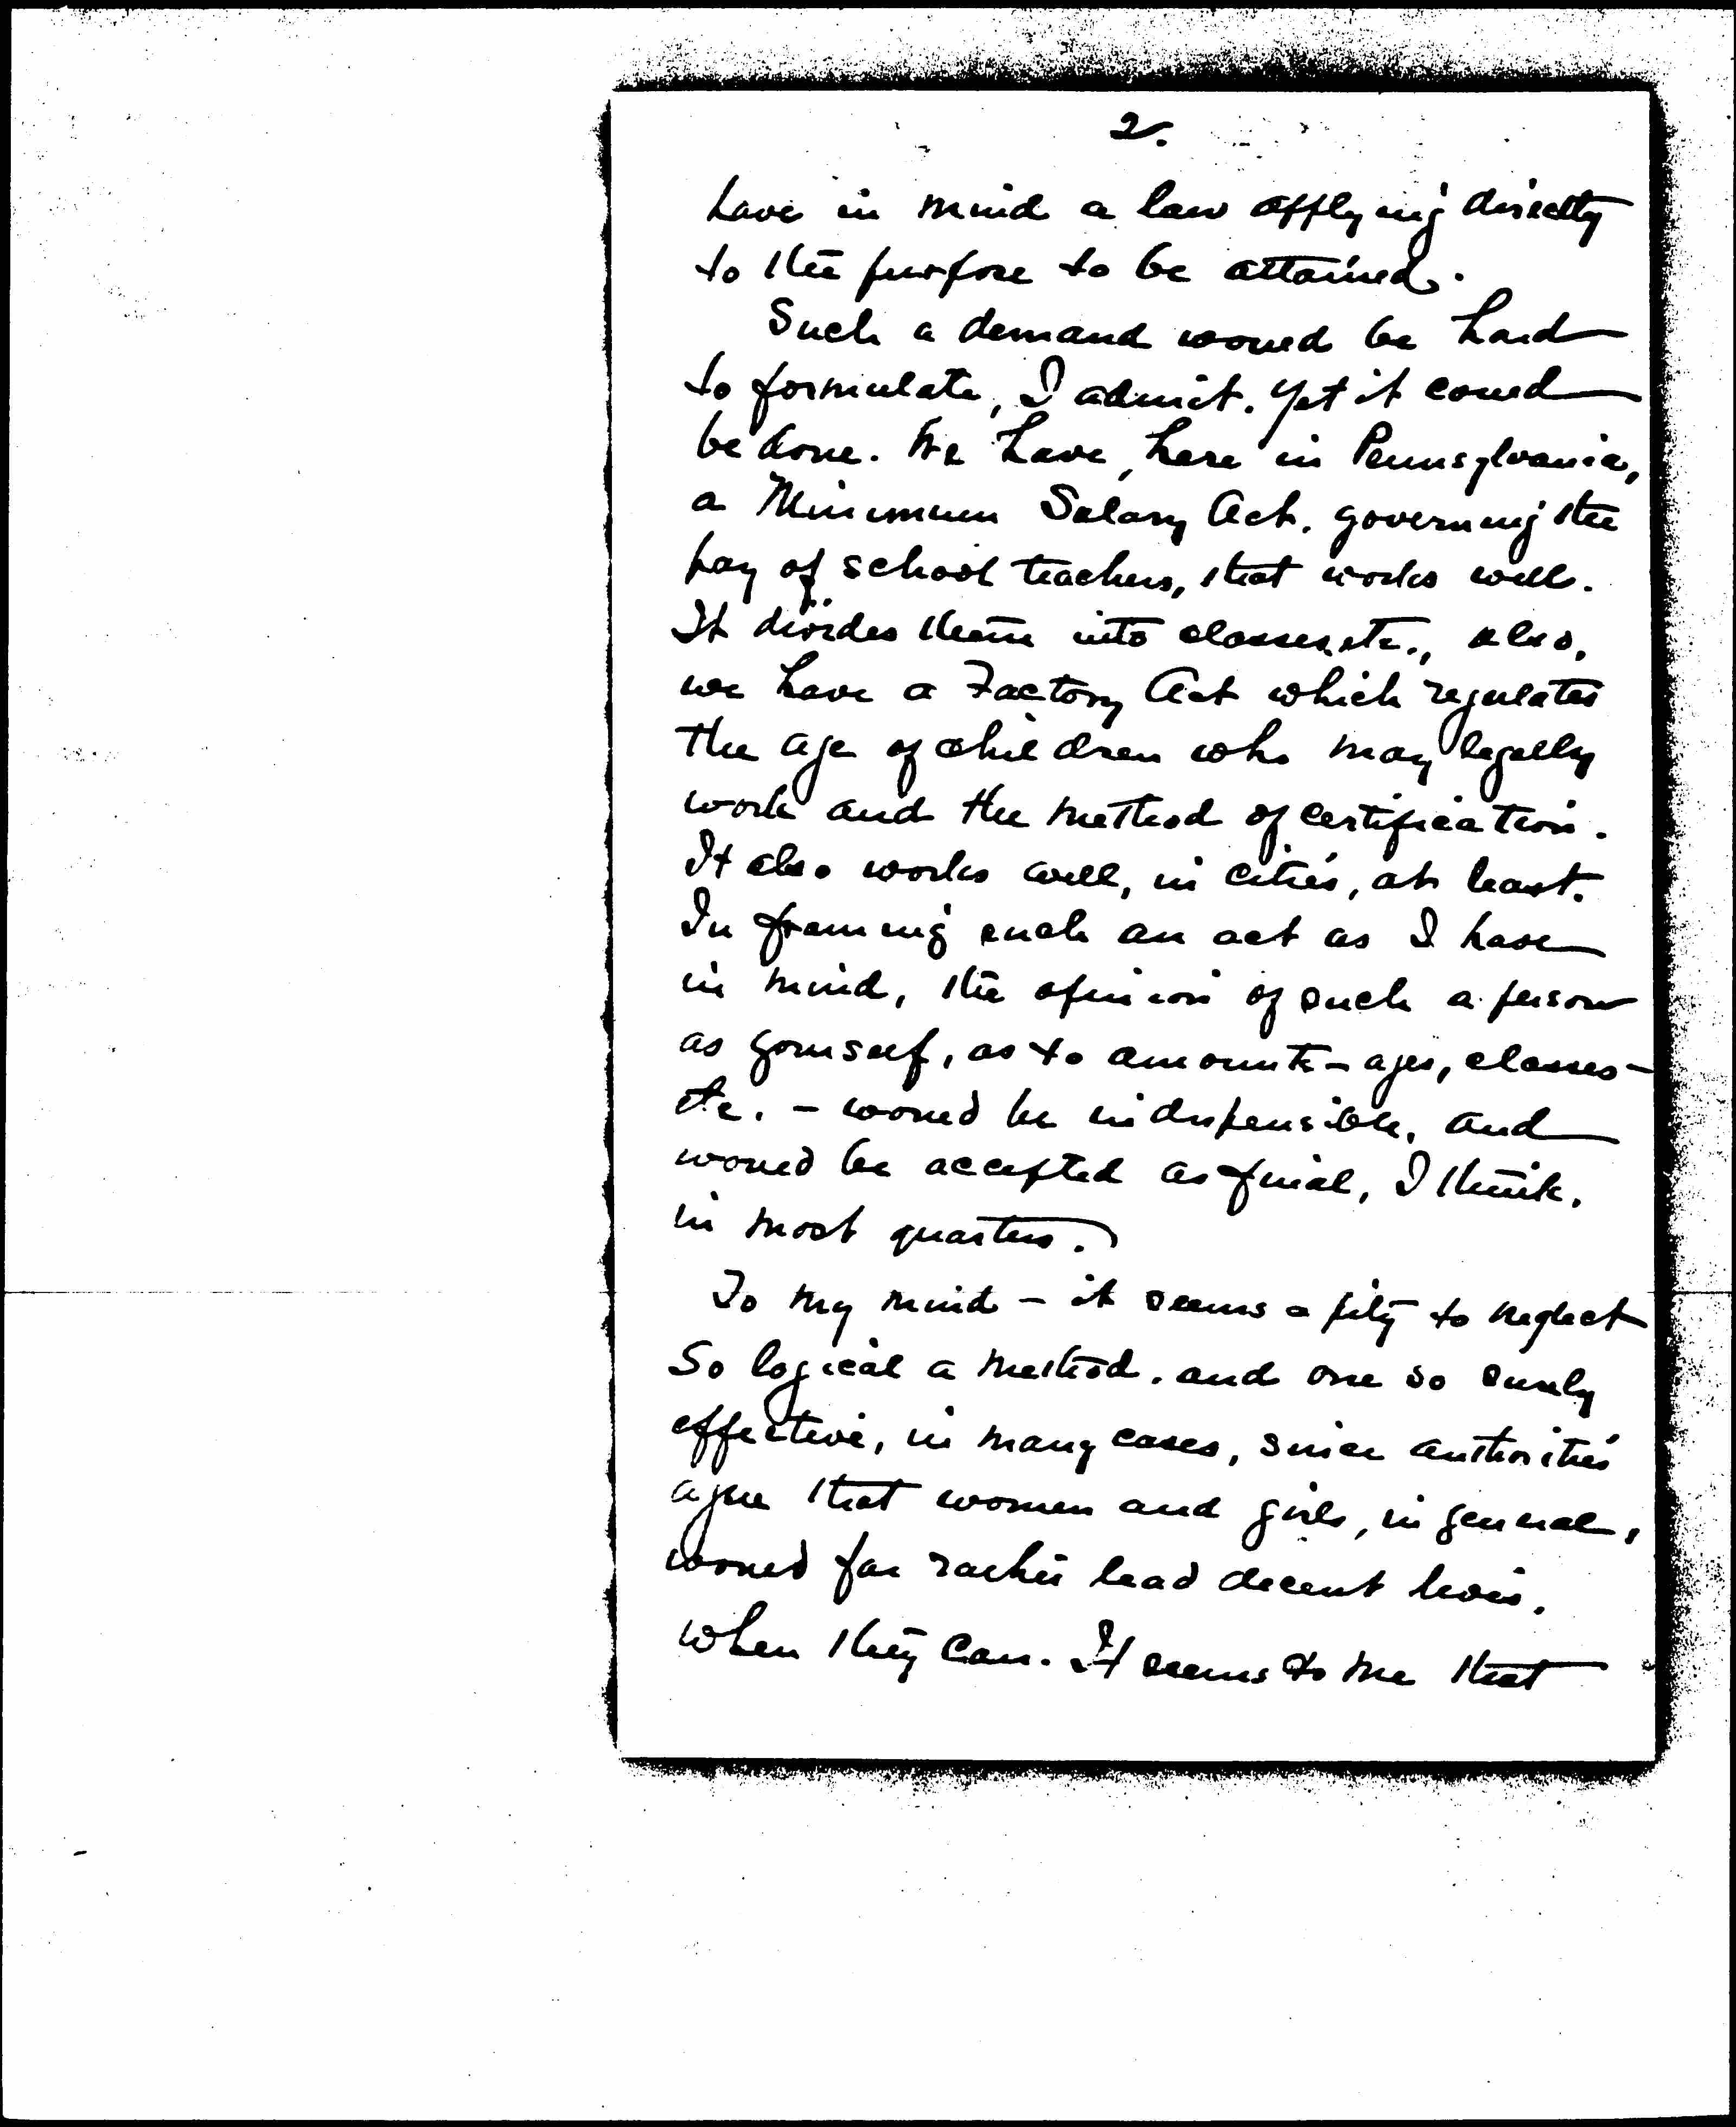 2.
have in mind a law applying directly
to the purpose to be attained.
Such a demand would be hard
to formulate, I admit. Yet it could
be done. We have, here in Pennsylvania,
a Minimum Salary Act. governing the
pay of school teachers, that works well.
It divides them into classes, etc., also,
we have a Factory Act which regulates
the age of children who may legally
work and the method of certification.
It also works well, in cities, at least.
In framing such an act as I have
in mind, the opinion of such a person
as yourself, as to amounts - ages, classes -
etc. - would be indispensible, and
would be accepted as final, I think,
in most quarters.
To my mind - it seems a pity to neglect
so logical a method, and one so surely
effective, in many cases, since authorities
agree that women and girls, in general,
would far rather lead decent lives,
when they can. It seems to me that